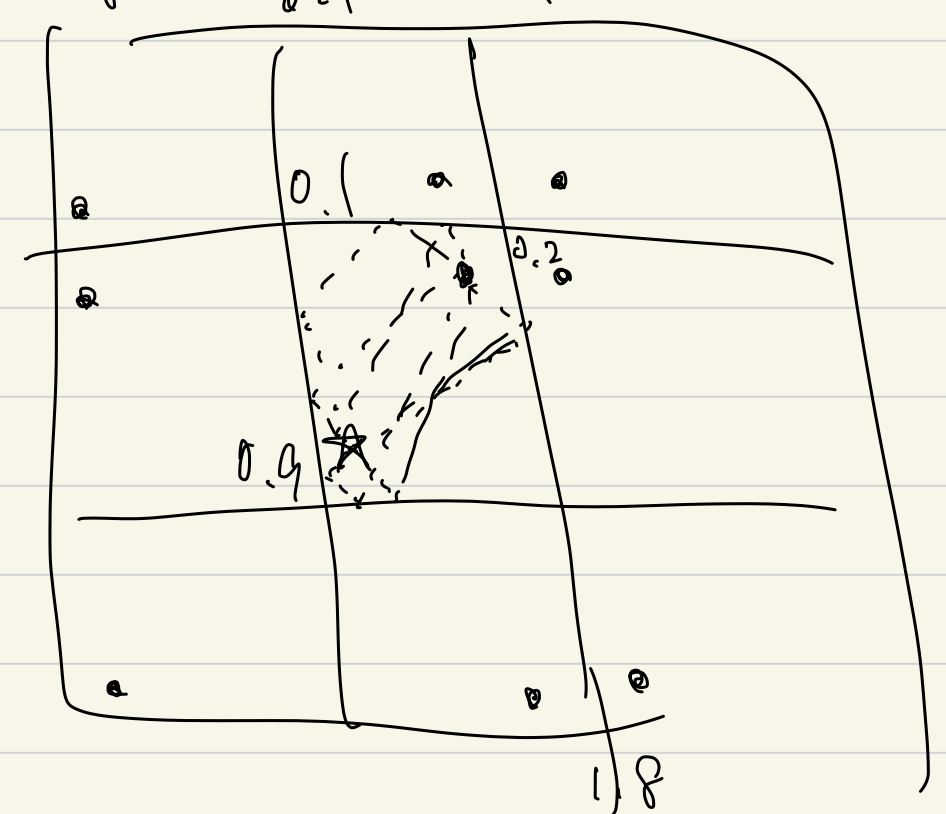 0.1
0.2
0.9
1 8